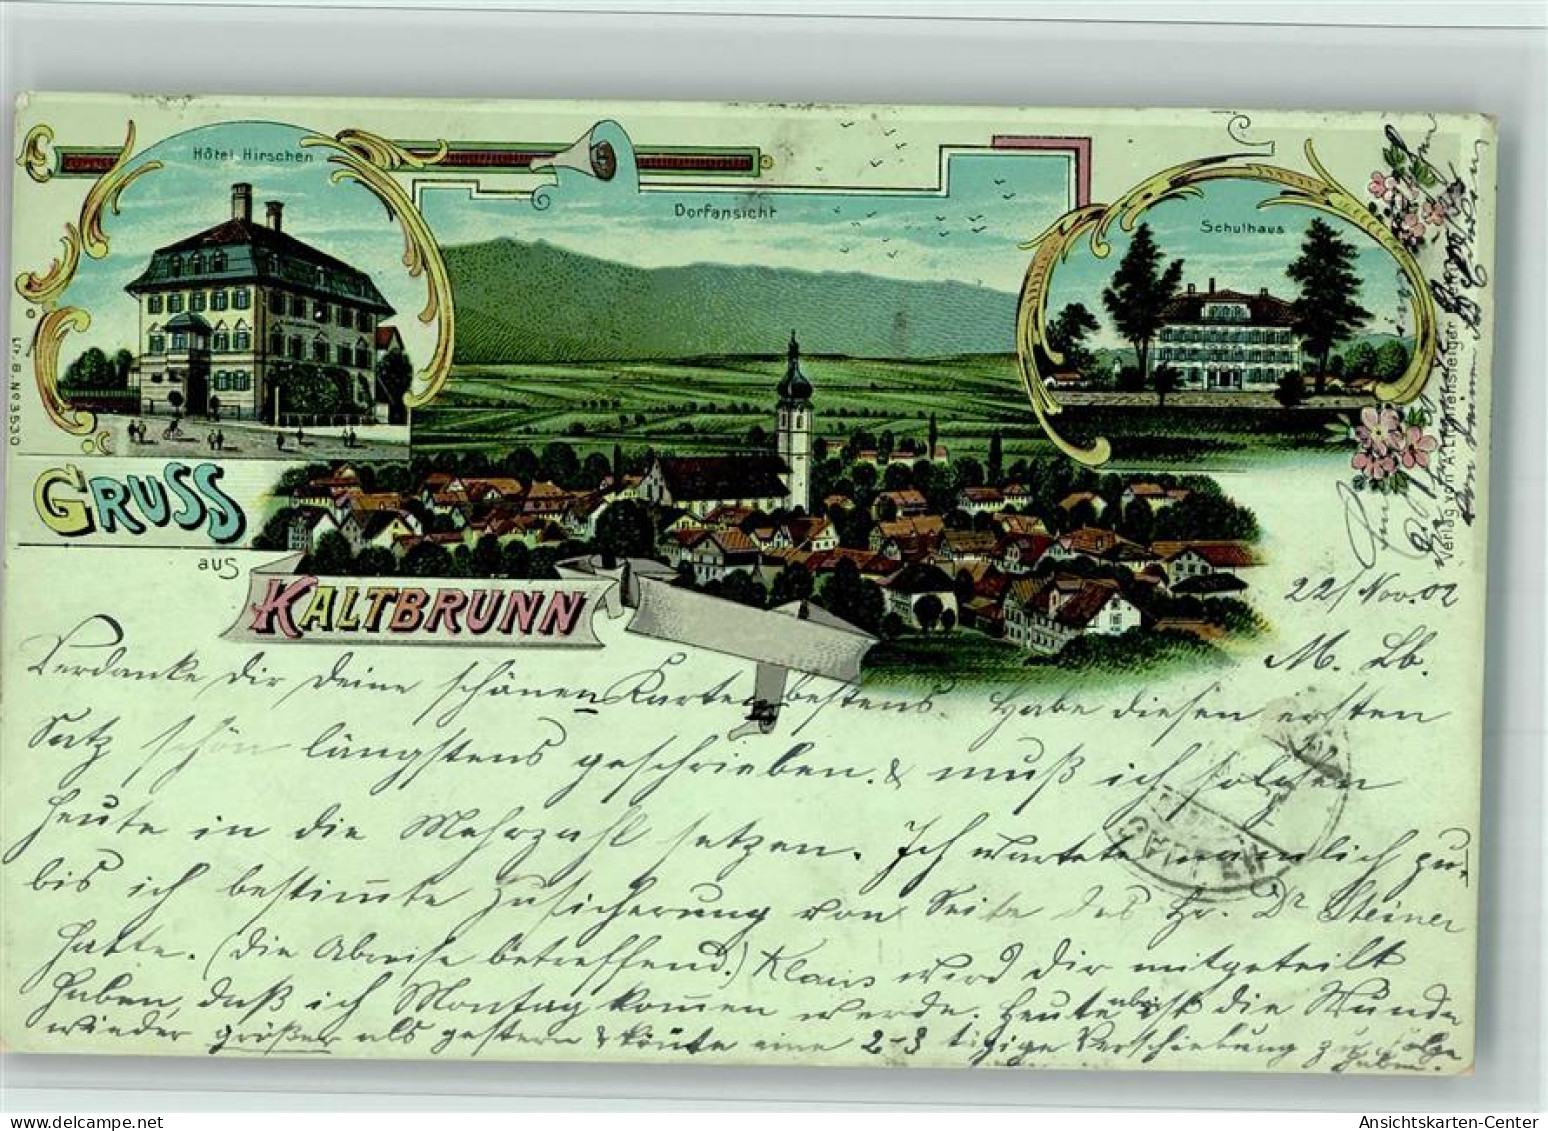 Hôtel Hirschen
Dorfansicht
Schulhaus
GRUSS
aus
KALTBRUNN
22/Nov. 02
M. Lb.
Verdanke dir deine schönen Karten bestens. Habe diesen ersten
Satz schon längstens geschrieben & muß ich solchen
heute in die Mehrzahl setzen. Ich wartete nämlich zu-
bis ich bestimmte Zusicherung von Seite des Hr. Dr Steiner
hatte. (die Abreise betreffend.) Klaus wird dir mitgeteilt
haben, daß ich Montag kommen werde. Heute aber ist die Wunde
wieder größer als gestern & könnte eine 2-3 tägige Verschiebung zur Folge
haben.
Verlag von A.
Lit. B. No 3530
Ansichtskarten-Center